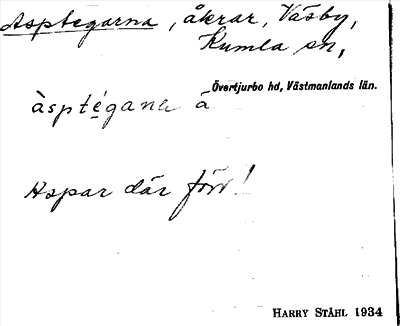 Asptegarna, åkrar, Väsby,
Kumla sn,
Övertjurbo hd, Västmanlands län.
àsptégana å
Aspar där förr!
HARRY STÅHL 1934